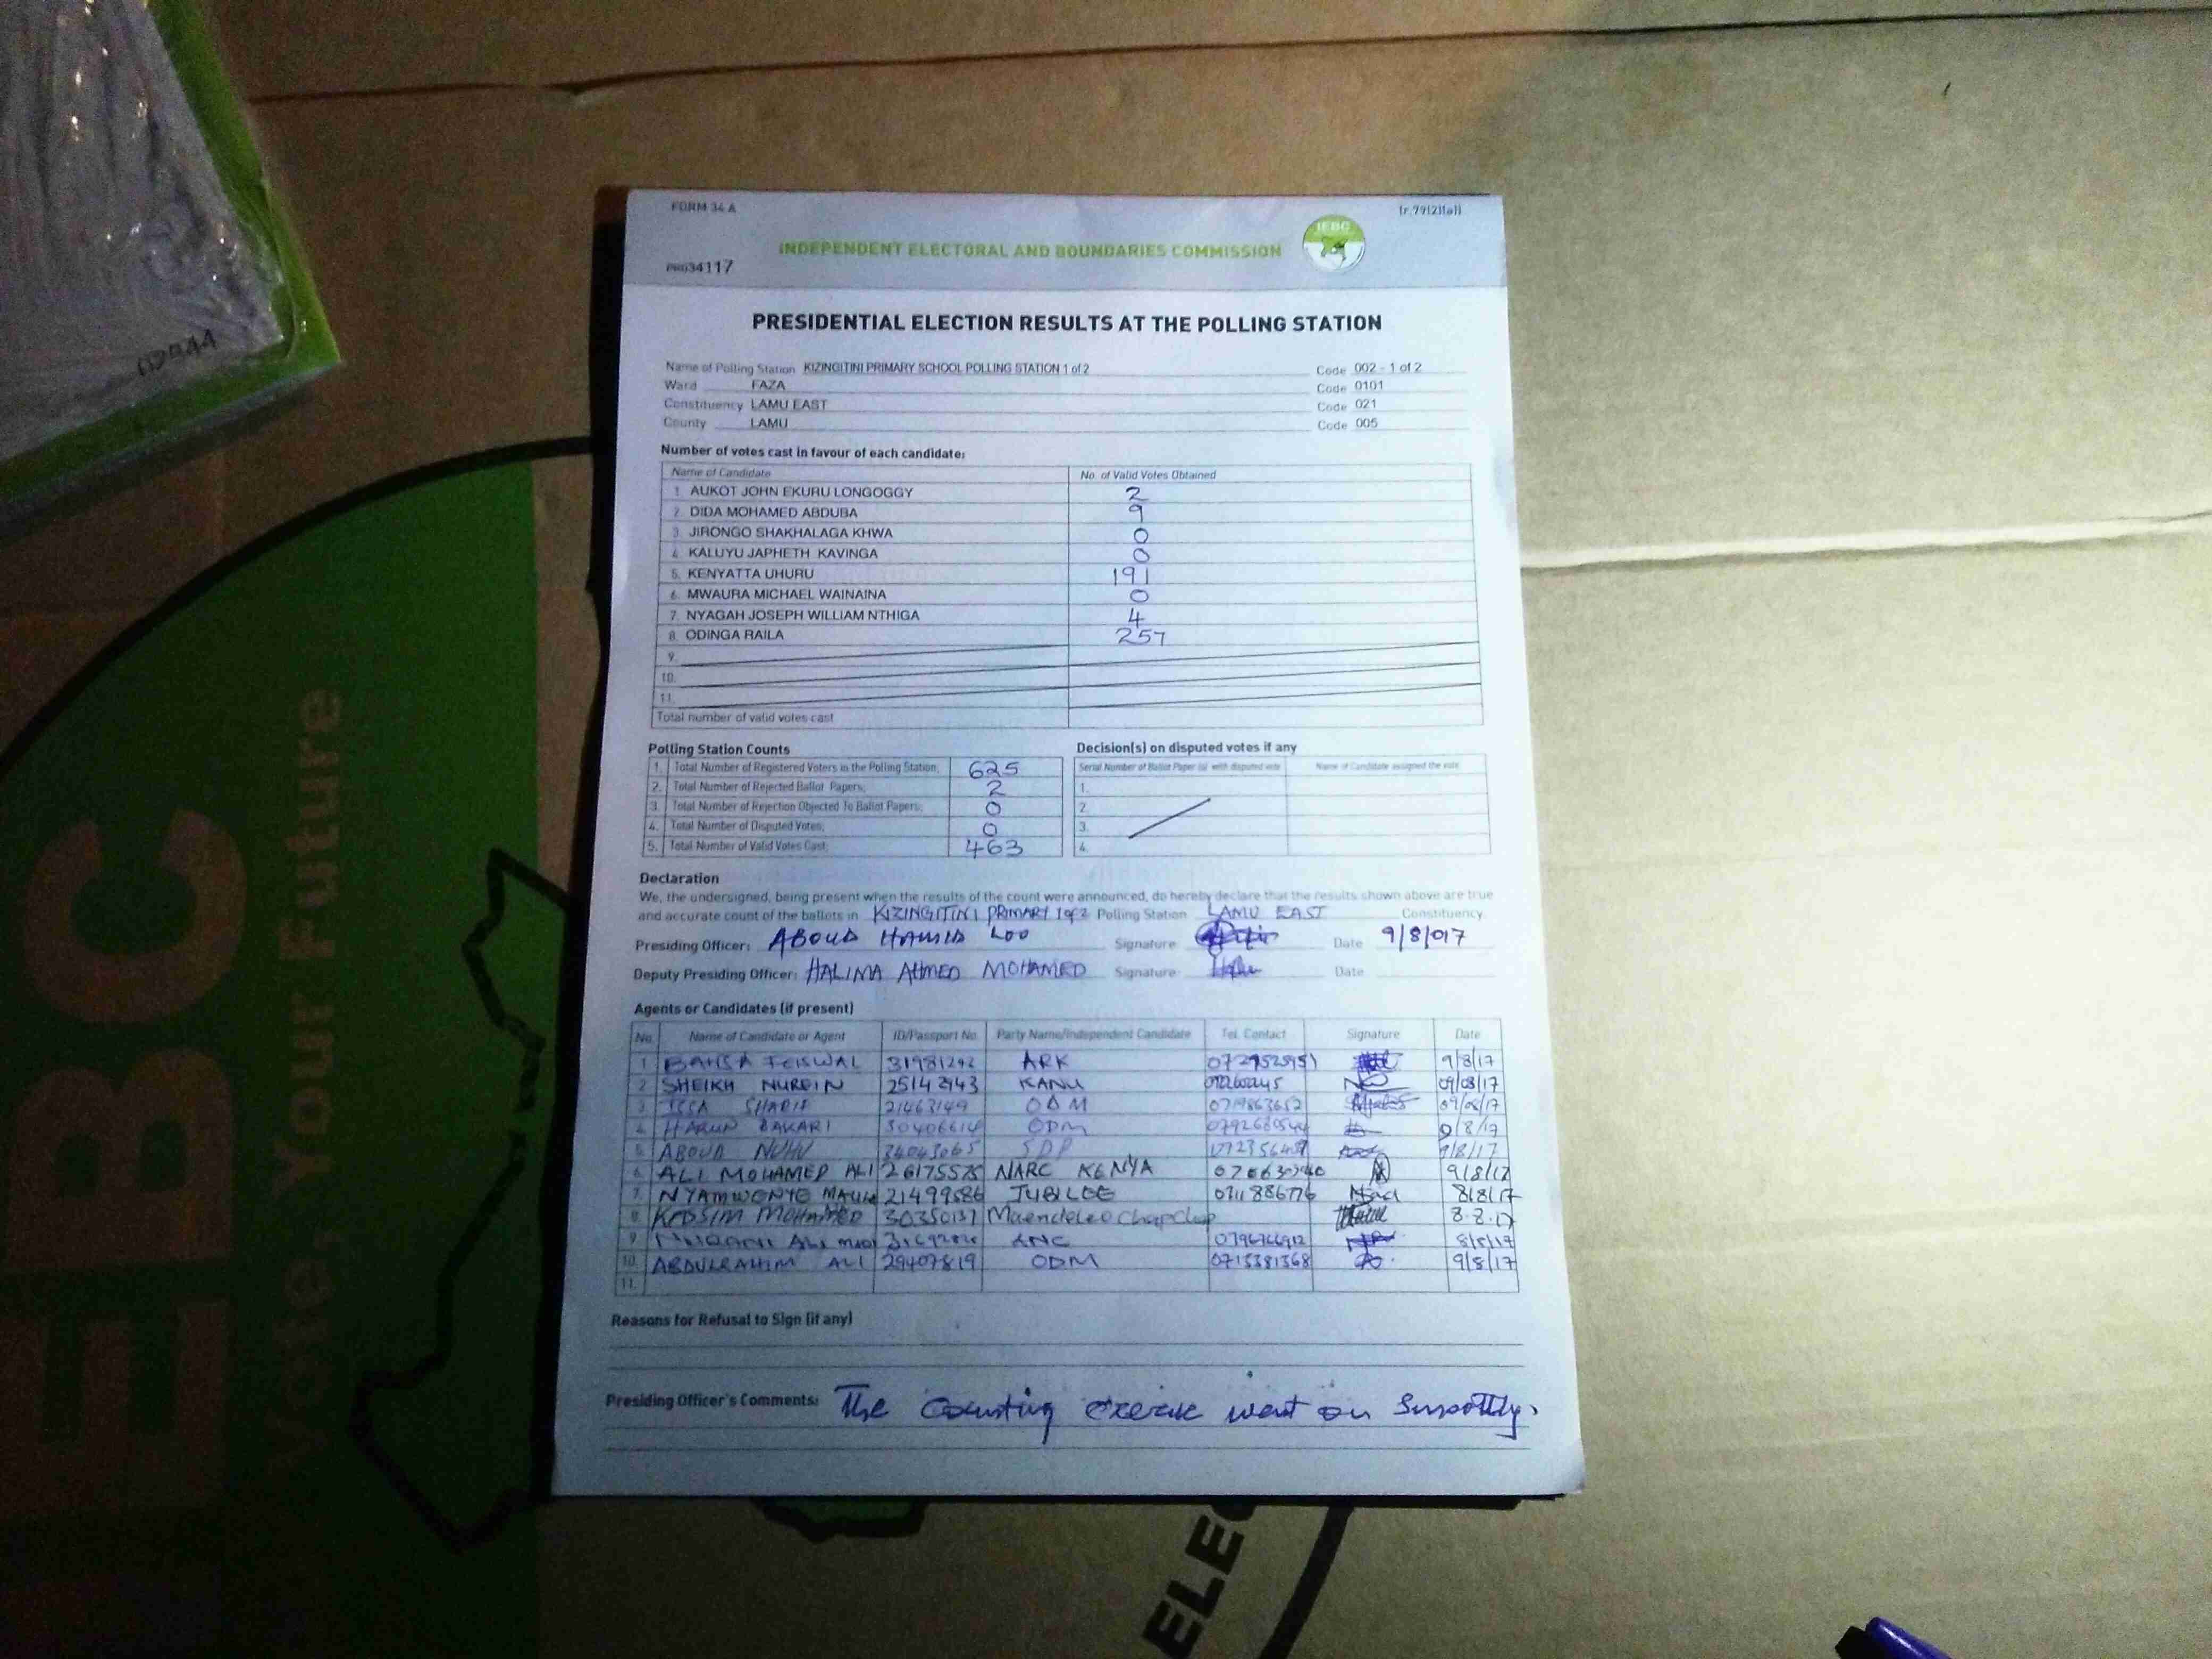 FORM 34 A
(r.79(2)(a))
INDEPENDENT ELECTORAL AND BOUNDARIES COMMISSION
IEBC
34117
PRESIDENTIAL ELECTION RESULTS AT THE POLLING STATION
Name of Polling Station KIZINGITINI PRIMARY SCHOOL POLLING STATION 1 of 2 Code 002 - 1 of 2
Ward FAZA Code 0101
Constituency LAMU EAST Code 021
County LAMU Code 005
Number of votes cast in favour of each candidate:
Name of Candidate No. of Valid Votes Obtained
1. AUKOT JOHN EKURU LONGOGGY 2
2. DIDA MOHAMED ABDUBA 9
3. JIRONGO SHAKHALAGA KHWA 0
4. KALUYU JAPHETH KAVINGA 0
5. KENYATTA UHURU 191
6. MWAURA MICHAEL WAINAINA 0
7. NYAGAH JOSEPH WILLIAM NTHIGA 4
8. ODINGA RAILA 257
9.
10.
11.
Total number of valid votes cast
Polling Station Counts
1. Total Number of Registered Voters in the Polling Station; 625
2. Total Number of Rejected Ballot Papers; 2
3. Total Number of Rejection Objected To Ballot Papers; 0
4. Total Number of Disputed Votes; 0
5. Total Number of Valid Votes Cast; 463
Decision(s) on disputed votes if any
Serial Number of Ballot Paper (s) with disputed vote Name of Candidate assigned the vote
1.
2.
3.
4.
Declaration
We, the undersigned, being present when the results of the count were announced, do hereby declare that the results shown above are true
and accurate count of the ballots in KIZINGITINI PRIMARY 1 of 2 Polling Station LAMU EAST Constituency
Presiding Officer: ABOUD HAMID LOO Signature Date 9/8/017
Deputy Presiding Officer: HALIMA AHMED MOHAMED Signature Date
Agents or Candidates (if present)
No. Name of Candidate or Agent ID/Passport No. Party Name/Independent Candidate Tel. Contact Signature Date
1 FEISWAL ARK 9/8/17
2 SHEIKH NUREIN KANU 09/08/17
3 ISSA SHARIF 21463149 ODM 0719863652 09/08/17
4. HARUN BAKARI 30406614 ODM 9/8/17
5. ABOUD NUHU SDP 9/8/17
6. ALI MOHAMED ALI 26175575 NARC KENYA 9/8/17
7. NYAMWENYE 21499586 JUBILEE 0711886776 8/8/17
8 MOHAMED 30350137 Maendeleo Chap Chap 8.8.17
9 ALI ANC 0796766912 8/8/17
10. ABDULRAHIM ALI 29407819 ODM 0713381368 9/8/17
11.
Reasons for Refusal to Sign (if any)
Presiding Officer's Comments: The counting exercise went on smoothly.
EBC
Vote, Your Future
ELEC